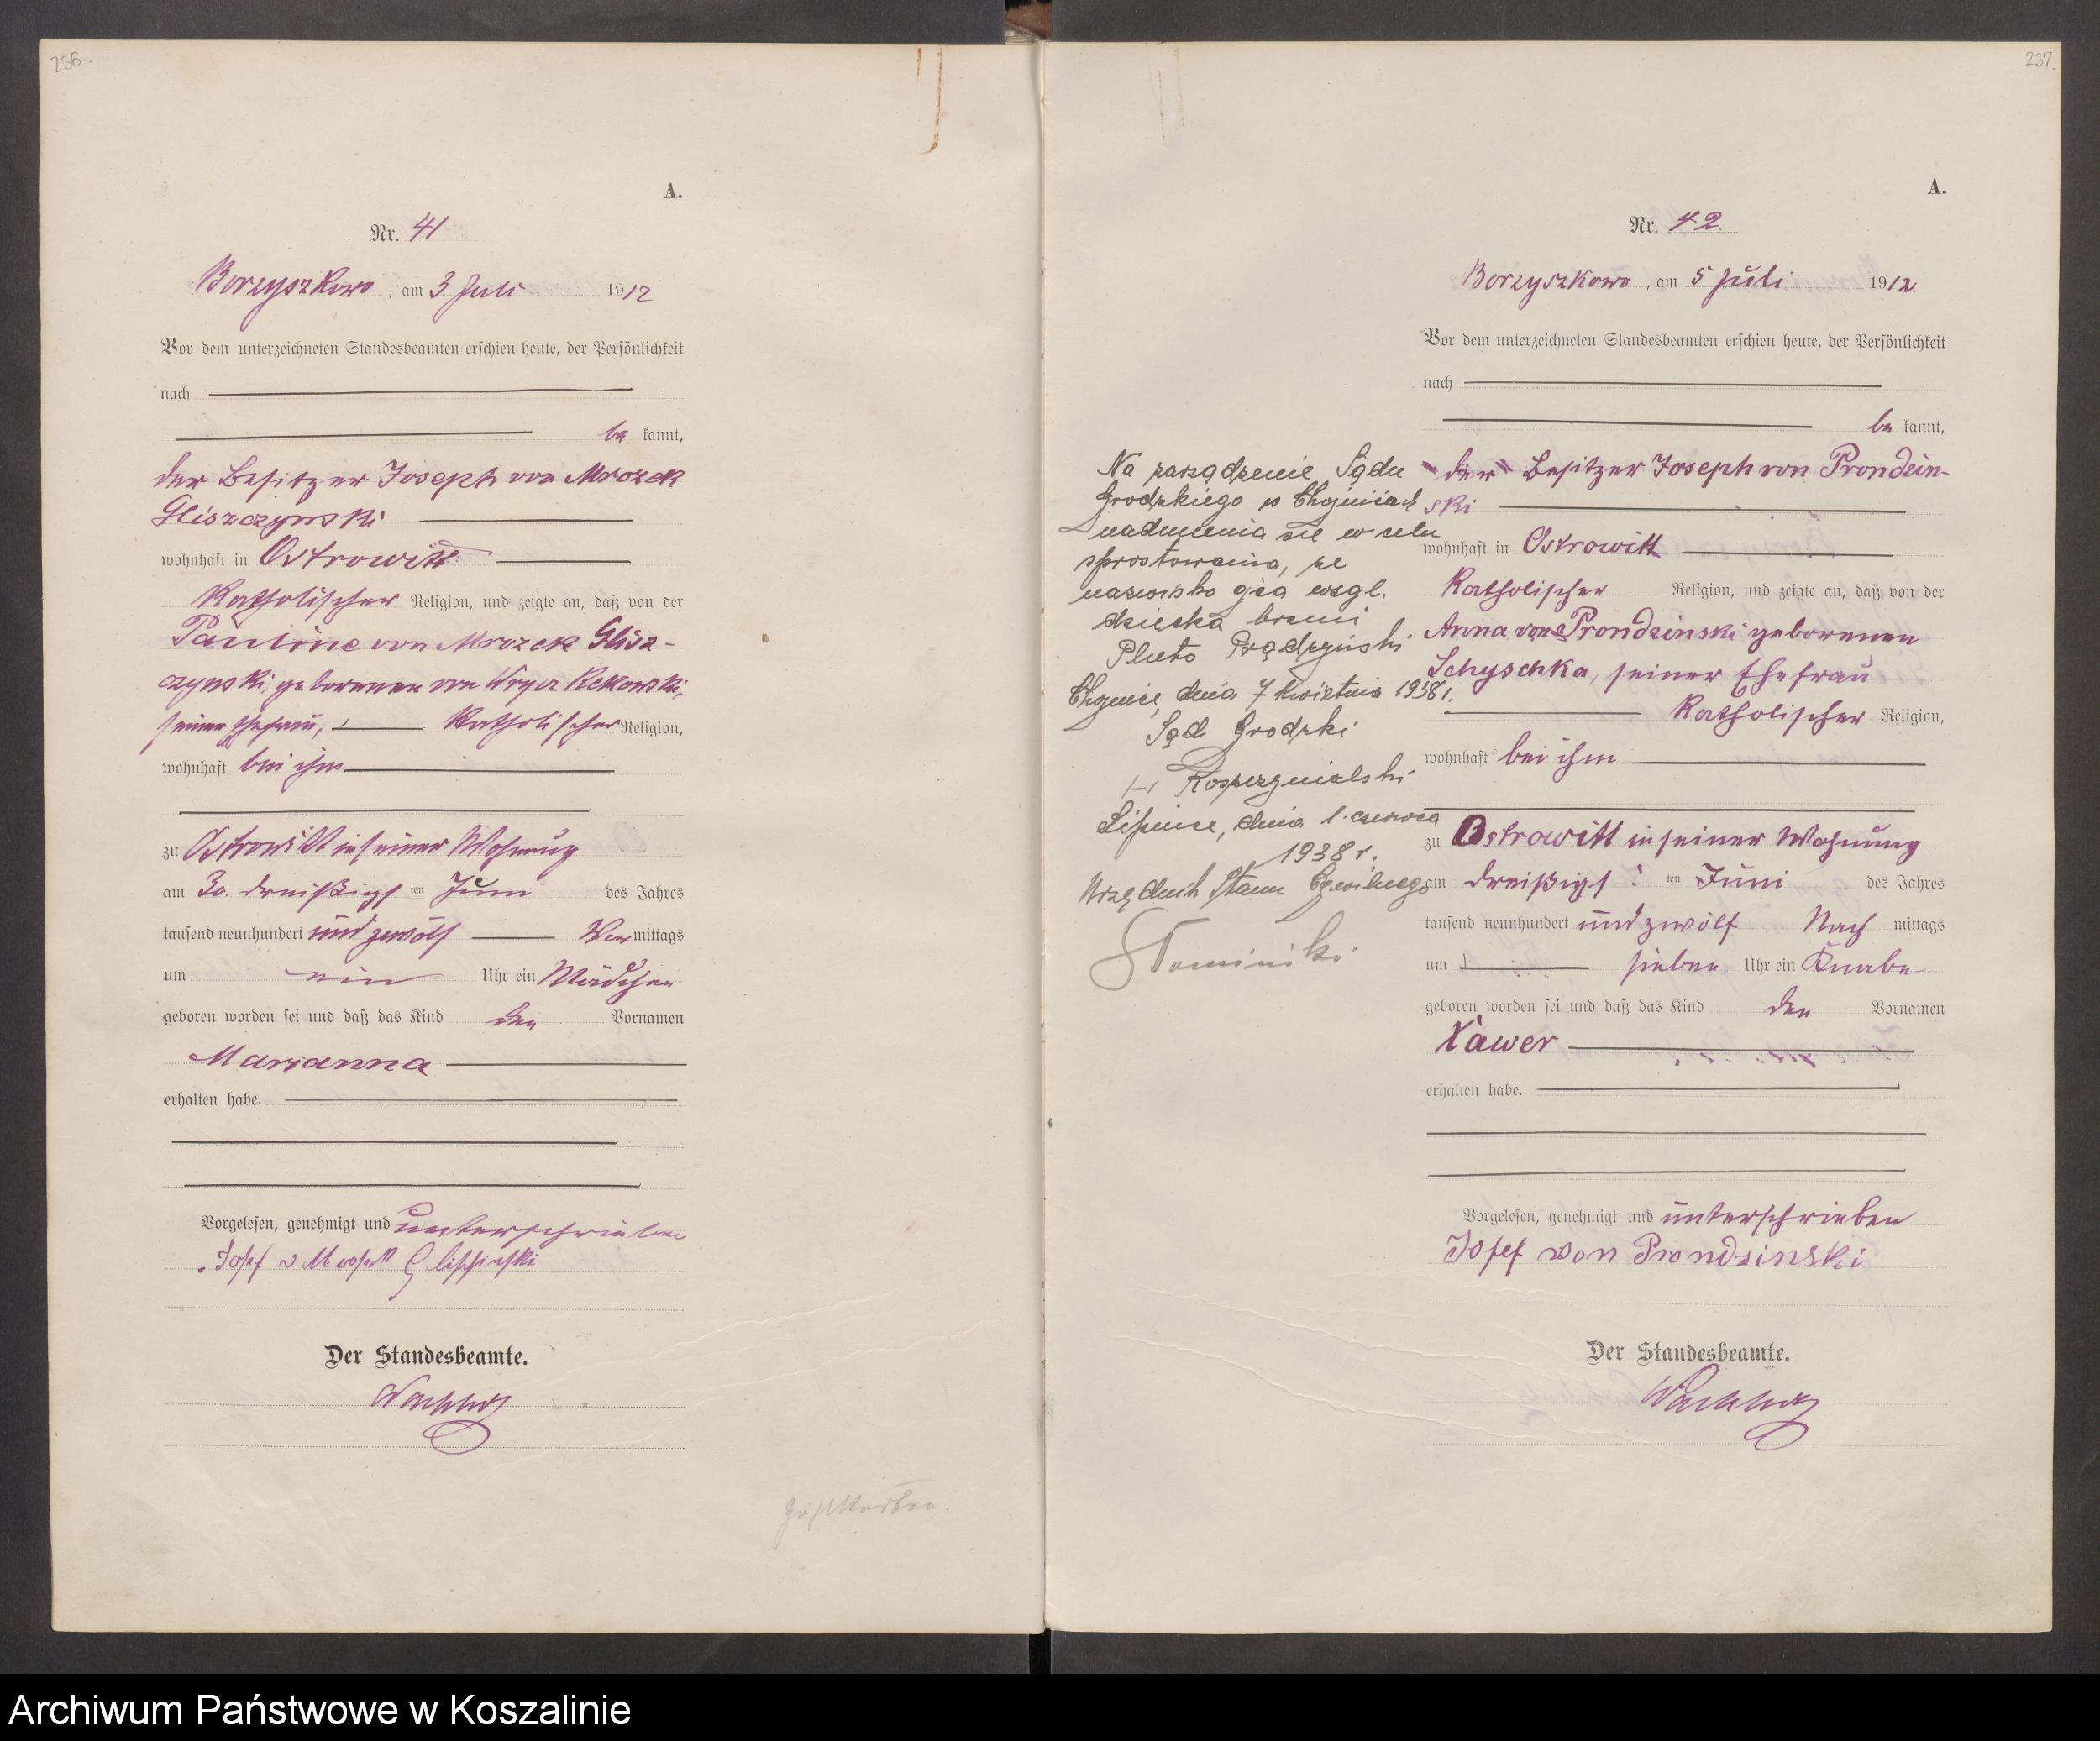 236.
A.
Nr. 41
Borzyszkowo, am 3. Juli 1912
Vor dem unterzeichneten Standesbeamten erschien heute, der Persönlichkeit
nach
be kannt,
der Besitzer Joseph von Mrozek
Gliszczynski
wohnhaft in Ostrowitt
Katholischer Religion, und zeigte an, daß von der
Pauline von Mrozek Glisz-
czynski, geborenen von Wrycz Rekowski,
seiner Ehefrau, Katholischer Religion,
wohnhaft bei ihm
zu Ostrowitt in seiner Wohnung
am 30. dreißigs ten Juni des Jahres
tausend neunhundert und zwölf Vor mittags
um ein Uhr ein Mädchen
geboren worden sei und daß das Kind den Vornamen
Marianna
erhalten habe.
Vorgelesen, genehmigt und unterschrieben
Josef v Mrosek Glischinski
Der Standesbeamte.
237.
A.
Nr. 42.
Borzyszkowo, am 5 Juli 1912.
Vor dem unterzeichneten Standesbeamten erschien heute, der Persönlichkeit
nach
be kannt,
der Besitzer Joseph von Prondzin-
ski
wohnhaft in Ostrowitt
Katholischer Religion, und zeigte an, daß von der
Anna von Prondzinski geborenen
Schyschka, seiner Ehefrau
Katholischer Religion,
wohnhaft bei ihm
zu Ostrowitt in seiner Wohnung
am dreißigs ten Juni des Jahres
tausend neunhundert und zwölf Nach mittags
um sieben Uhr ein Knabe
geboren worden sei und daß das Kind den Vornamen
Xawer
erhalten habe.
Vorgelesen, genehmigt und unterschrieben
Josef von Prondzinski
Der Standesbeamte.
Na zarządzenie Sądu
Grodzkiego w Chojnicach
nadmienia się w celu
sprostowania, że
nazwisko ojca wzgl.
dziecka brzmi
Pluto Prądzyński
Chojnice, dnia 7 kwietnia 1938 r.
Sąd Grodzki
Lipnice, dnia 1. czerwca
1938 r.
Urzędnik Stanu Cywilnego
Archiwum Państwowe w Koszalinie